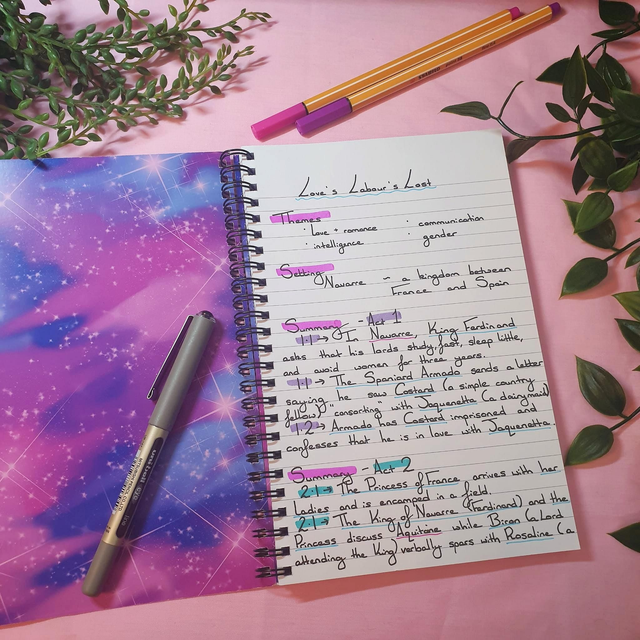 Love's Labour's Lost
Themes
· love + romance · communication
· intelligence gender
Setting
Navarre - a kingdom between
France and Spain
Summary - Act 1
1.1 → In Navarre, King Ferdinand
asks that his lords study, fast, sleep little,
and avoid women for three years.
1.1 → The Spaniard Armado sends a letter
saying he saw Costard (a simple country
fellow) consorting with Jaquenetta (a dairymaid)
1.2 → Armado has Costard imprisoned and
confesses that he is in love with Jaquenetta.
Summary - Act 2
2.1 → The Princess of France arrives with her
Ladies and is encamped in a field.
2.1 → The King of Navarre (Ferdinand) and the
Princess discuss Aquitane while Biron (a Lord
attending the King) verbally spars with Rosaline (a